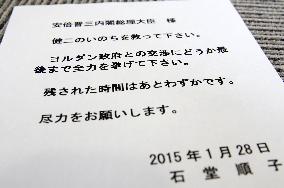 安倍晋三内閣総理大臣 様
健二のいのちを救って下さい。
ヨルダン政府との交渉にどうか最
後まで全力を挙げて下さい。
残された時間はあとわずかです。
尽力をお願いします。
2015年1月28日
石堂 順子